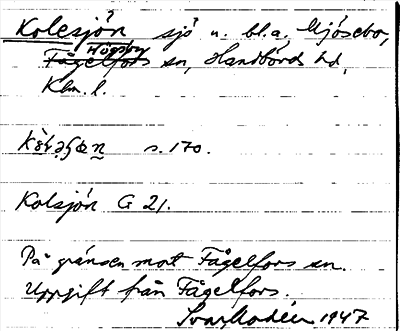 Kolesjön sjö n. bl.a. Mjösebo,
Högsby
Fågelfors sn, Handbörds hd,
Klm. l.
s. 170.
Kolsjön G 21.
På gränsen mot Fågelfors sn.
Uppgift från Fågelfors.
Ivar Modéer 1947